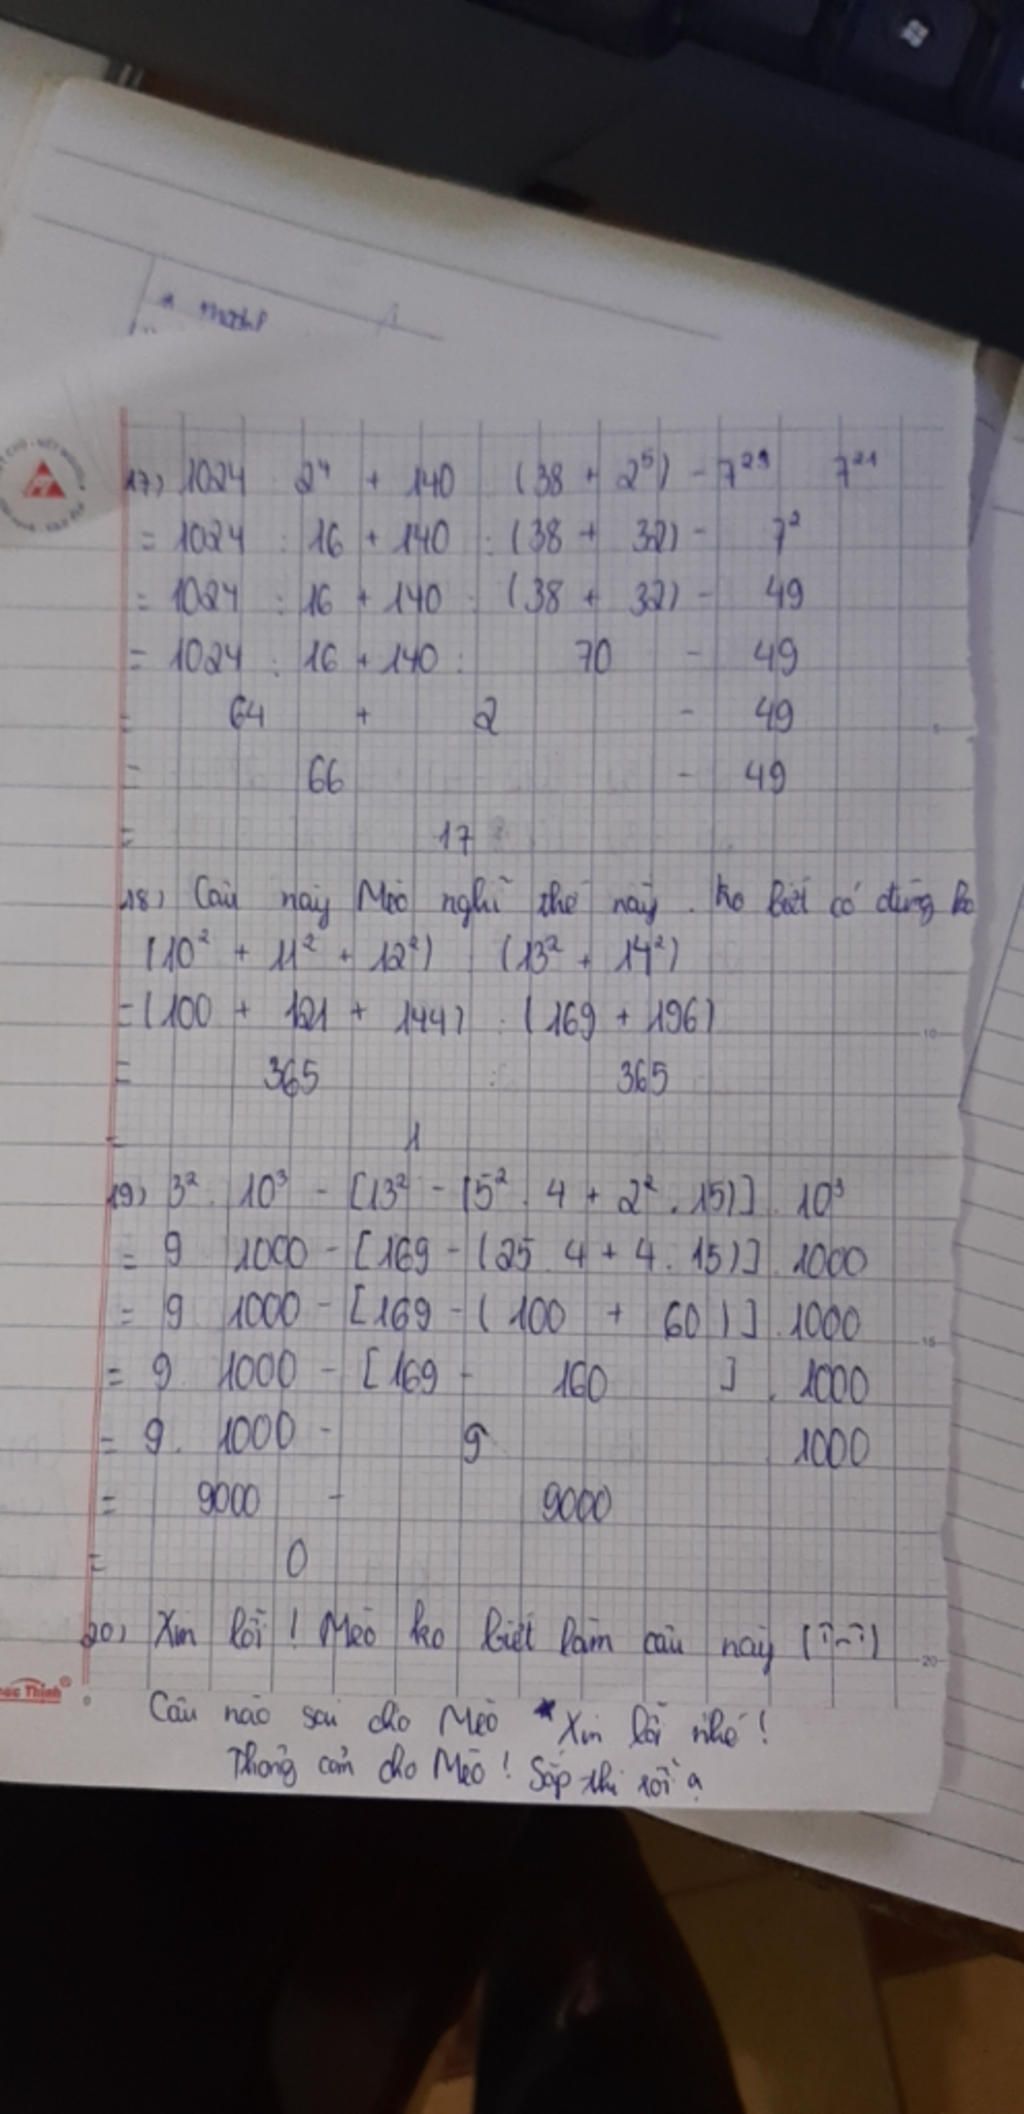 17) 1024 : 2⁴ + 140 : (38 + 2⁵) - 7²³ : 7²¹
= 1024 : 16 + 140 : (38 + 32) - 7²
= 1024 : 16 + 140 : (38 + 32) - 49
= 1024 : 16 + 140 : 70 - 49
= 64 + 2 - 49
= 66 - 49
= 17
18) Câu này Mèo nghĩ thế này. Ko biết có đúng ko
(10² + 11² + 12²) : (13² + 14²)
= (100 + 121 + 144) : (169 + 196)
= 365 : 365
= 1
19) 3² . 10³ - [13² - (5² . 4 + 2² . 15)] . 10³
= 9 . 1000 - [169 - (25 . 4 + 4 . 15)] . 1000
= 9 . 1000 - [169 - (100 + 60)] . 1000
= 9 . 1000 - [169 - 160] . 1000
= 9 . 1000 - 9 . 1000
= 9000 - 9000
= 0
20) Xin lỗi ! Mèo ko biết làm câu này
Câu nào sai cho Mèo * Xin lỗi nhé !
Thông cảm cho Mèo ! Sắp thi rồi ạ